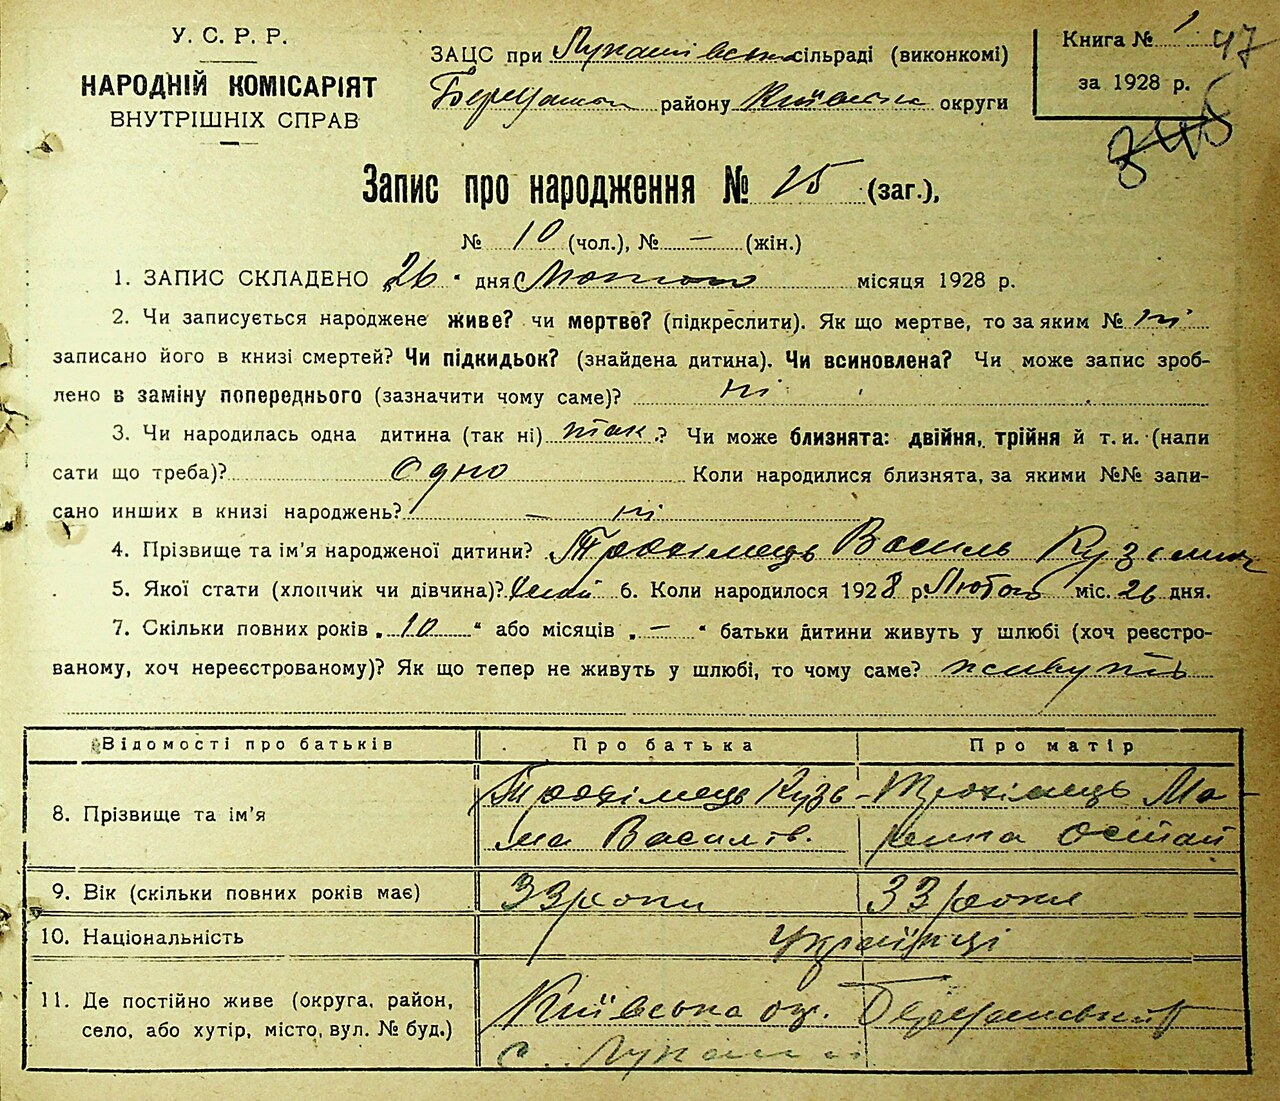 У. С. Р. Р.
НАРОДНІЙ КОМІСАРІЯТ
ВНУТРІШНІХ СПРАВ
ЗАЦС при Лукашівській сільраді (виконкомі)
району Київської округи
Книга № 1 47
за 1928 р.
Запис про народження № 25 (заг.),
№ 10 (чол.), № — (жін.)
1. ЗАПИС СКЛАДЕНО „26" дня Лютого місяця 1928 р.
2. Чи записується народжене живе? чи мертве? (підкреслити). Як що мертве, то за яким № ні
записано його в книзі смертей? Чи підкидьок? (знайдена дитина). Чи всиновлена? Чи може запис зроб-
лено в заміну попереднього (зазначити чому саме)? ні
3. Чи народилась одна дитина (так ні) так ? Чи може близнята: двійня, трійня й т. и. (напи
сати що треба)? одно Коли народилися близнята, за якими №№ запи-
сано инших в книзі народжень? — ні
4. Прізвище та ім'я народженої дитини? Трохімець Василь
5. Якої стати (хлопчик чи дівчина)? 6. Коли народилося 1928 р. Лютого міс. 26 дня.
7. Скільки повних років „10" або місяців „—" батьки дитини живуть у шлюбі (хоч реєстро-
ваному, хоч нереєстрованому)? Як що тепер не живуть у шлюбі, то чому саме? живуть
Відомості про батьків Про батька Про матір
8. Прізвище та ім'я Трохімець Кузь- Трохімець Ма-
ма Василів. Остап
9. Вік (скільки повних років має) 33 роки 33 роки
10. Національність Українці
11. Де постійно живе (округа, район, Київська ок.
село, або хутір, місто, вул. № буд.) с.